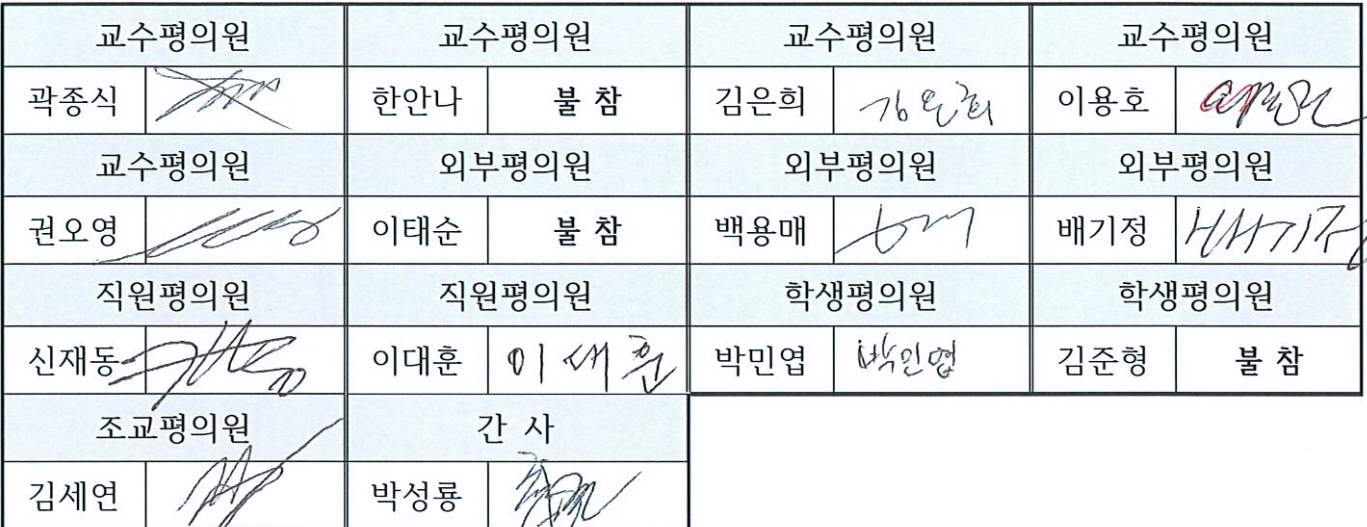 교수평의원 교수평의원 교수평의원 교수평의원
곽종식 한안나 불 참 김은희 김은희 이용호
교수평의원 외부평의원 외부평의원 외부평의원
권오영 이태순 불 참 백용매 배기정 배기정
직원평의원 직원평의원 학생평의원 학생평의원
신재동 이대훈 이대훈 박민엽 박민엽 김준형 불 참
조교평의원 간 사
김세연 박성룡